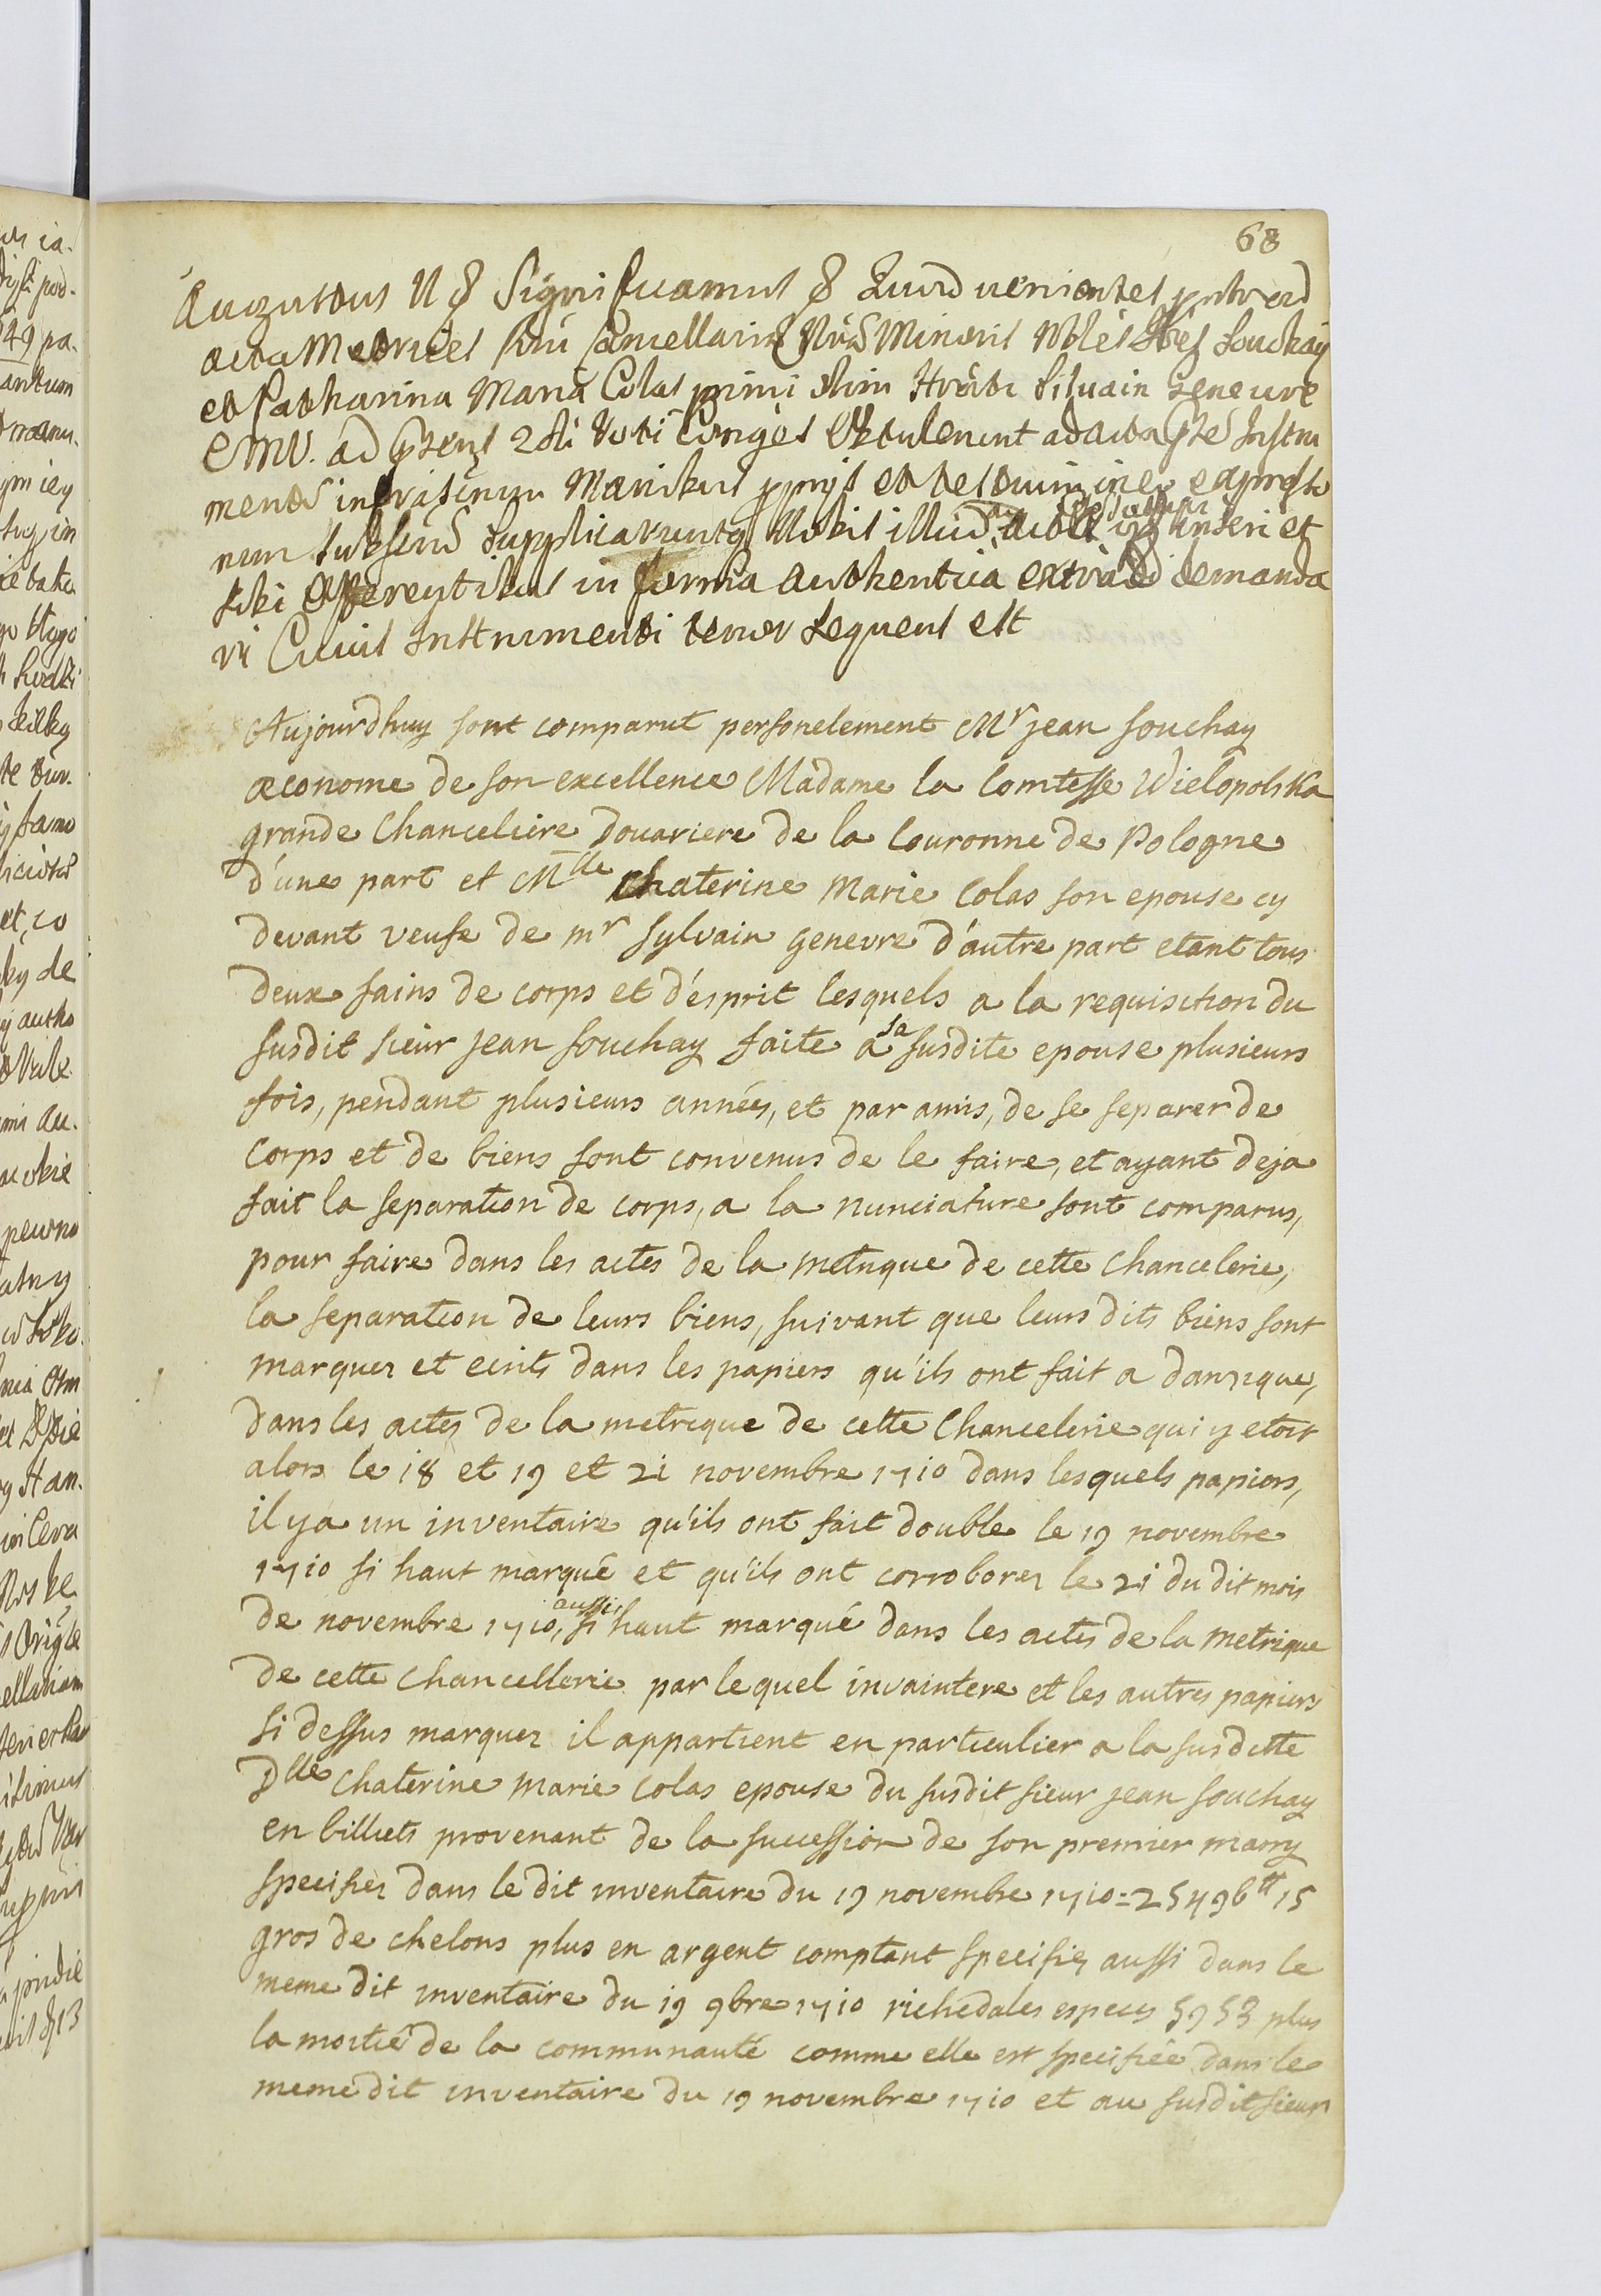 68
Augustus II & Significamus & Quod venientes pntr ad
acta Metrices Cancellariae Minoris Nobles Souchay
et Catharina Maria Colas primi olim Silvain Geneure
ad 2di Voti Conges obtulerunt ad acta Instru
mentum infrascriptum Manibus pprijs et testium in eo expresso
rum subscriptum supplicaruntq Nobis illud actis inseri et
sibi Offerentibus in forma Authentica extradi demanda
ri Cuius Instrumenti tenor sequens est
Aujourdhuy sont comparut personelement Mr jean souchay
œconome de son excellence Madame la Comtesse Wielopolska
grande Chanceliere Douariere de la Couronne de Pologne
d'une part et Mlle Chaterine Marie Colas son epouse cy
devant veufe de mr Sylvain genevre d'autre part etant tous
deux sains de corps et d'esprit lesquels a la requisition du
susdit sieur jean souchay faite a sa susdite epouse plusieurs
fois, pendant plusieurs années, et par amis, de se separer de
Corps et de biens sont convenus de le faire, et ayant deja
fait la separation de corps, a la nunciature sont comparus,
pour faire dans les actes de la metrique de cette chancelerie,
la separation de leurs biens, suivant que leurs dits biens sont
marquez et ecrits dans les papiers qu'ils ont fait a danzique,
dans les actes de la metrique de cette Chancelerie qui y etoit
alors le 18 et 19 et 21 novembre 1710 dans lesquels papiers,
il ya un inventaire qu'ils ont fait double le 19 novembre
1710 si haut marqué et qu'ils ont corroborez le 21 du dit mois
de novembre 1710, aussi si haut marqué dans les actes de la Metrique
de cette chancellerie par lequel invaintere et les autres papiers
si dessus marquez il appartient en particulier a la susditte
Dlle Chaterine Marie Colas epouse du susdit sieur jean souchay
en billiets provenant de la succession de son premier marry
specifiez dans le dit inventaire du 19 novembre 1710 = 25796tt 15
gros de chelons plus en argent comptant specifiez aussi dans le
meme dit inventaire du 19 9bre 1710 richedales especes 5953 plus
la moitié de la communauté comme elle est specifiée dans le
meme dit inventaire du 19 novembre 1710 et au susdit sieur